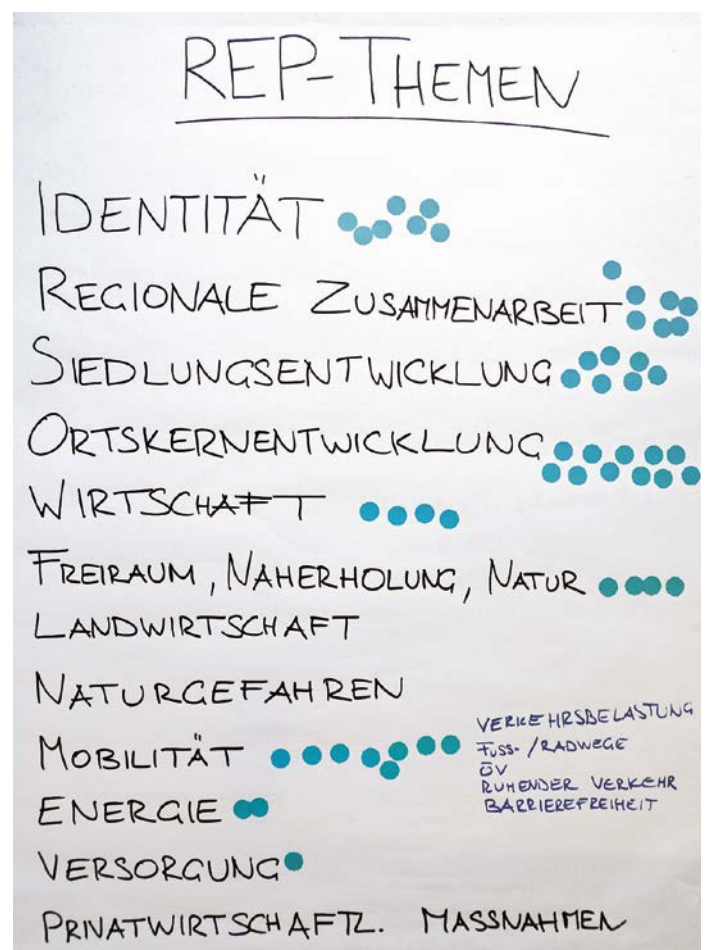 REP-THEMEN
IDENTITÄT
REGIONALE ZUSAMMENARBEIT
SIEDLUNGSENTWICKLUNG
ORTSKERNENTWICKLUNG
WIRTSCHAFT
FREIRAUM, NAHERHOLUNG, NATUR
LANDWIRTSCHAFT
NATURGEFAHREN
MOBILITÄT
VERKEHRSBELASTUNG
FUSS-/RADWEGE
ÖV
RUHENDER VERKEHR
BARRIEREFREIHEIT
ENERGIE
VERSORGUNG
PRIVATWIRTSCHAFTL. MASSNAHMEN